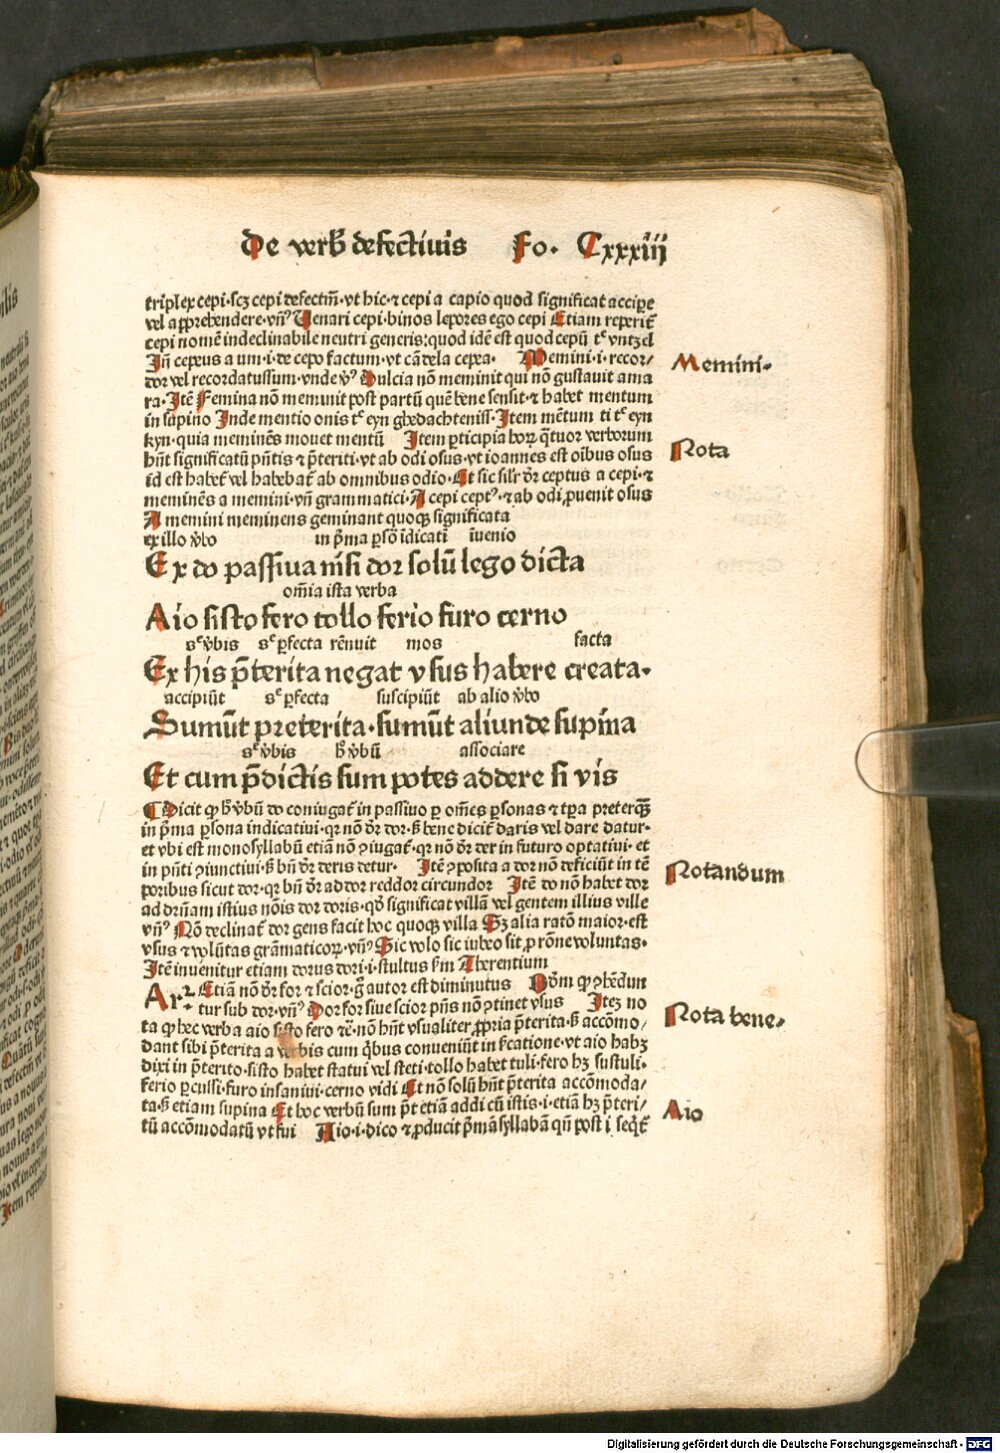 De verb̃ defectiuis Fo. Cxxxiij
triplex cepi·scꝫ cepi defectiũ·vt hic·⁊ cepi a capio quod significat accipe
vel apprehendere·vñꝰ Uenari cepi·binos lepores ego cepi Etiam reperit̃
cepi nomẽ indeclinabile neutri generis:quod idẽ est quod cepũ
Jñ cepeus a um·i·de cepo factum·vt cãdela cepea· Memini·i·recor/
dor vel recordatussum·vnde ṽꝰ Dulcia nõ meminit qui nõ gustauit ama
ra·Jtẽ Femina nõ meminit post partũ quẽ bene sensit·⁊ habet mentum
in supino Jnde mentio onis tᷤ eyn ghedachteniss·Jtem mẽtum ti tᷤ eyn
kyn·quia meminẽs mouet mentũ Jtem ꝑticipia horꝝ q̃tuor verborum
hñt significatũ pñtis ⁊ p̃teriti·vt ab odi osus·vt ioannes est oĩbus osus
id est habet̃ vel habebat̃ ab omnibus odio·Et sic silr̃ dr̃ ceptus a cepi·⁊
meminẽs a memini·vñ grammatici·A cepi ceptꝰ·⁊ab odi ꝓuenit osus
A memini meminens geminant quoqꝫ significata
ex illo ṽbo in p̃ma ꝑsõ ĩdicati ĩuenio
Ex do passiua nisi dor solũ lego dicta
om̃ia ista verba
Aio sisto fero tollo ferio furo cerno
sᷤ ṽbis sᷤ ꝑfecta rẽnuit mos facta
Ex his p̃terita negat vsus habere creata·
accipiũt sᷤ ꝑfecta suscipiũt ab alio ṽbo
Sumũt preterita·sumũt aliunde supina
sᷤ ṽbis h̃ ṽbũ associare
Et cum p̃dictis sum potes addere si vis
Dicit ꝙ h̃ ṽbũ do coniugat̃ in passiuo ꝑ om̃es ꝑsonas ⁊ tꝑa preterq̃ꝫ
in p̃ma ꝑsona indicatiui·qꝛ nõ dr̃ dor·s̃ bene dicit̃ daris vel dare datur·
et vbi est monosyllabũ etiã nõ ꝯiugat̃·qꝛ nõ dr̃ der in futuro optatiui·et
in pñti ꝯiunctiui·s̃ bñ dr̃ deris detur· Jtẽ ꝯposita a dor nõ deficiũt in tẽ
poribus sicut dor·qꝛ bñ dr̃ ad dor reddor circundor Jtẽ do nõ habet dor
ad drñam istius nõis dor doris·qd̃ significat villã vel gentem illius ville
vñꝰ Nõ declinat̃ dor gens facit hoc quoqꝫ villa Sꝫ alia ratõ maior·est
vsus ⁊ volũtas grãmaticoꝝ·vñꝰ Sic volo sic iubeo sit ꝓ rõne voluntas·
Jtẽ inuenitur etiam dorus dori·i·stultus s̃m Therentium
Ar· Etiã nõ dr̃ for ⁊ scior·g̃ autor est diminutus Ñdm ꝙ ꝯhẽdun
tur sub dor·vñꝰ Dor for siue scior pñs nõ ꝯtinet vsus Jteꝫ no
ta ꝙ hec verba aio sisto fero ⁊c̃·nõ hñt vsualiter ꝓpria p̃terita·s̃ accõmo/
dant sibi p̃terita a verbis cum q̃bus conueniũt in s̃catione·vt aio habꝫ
dixi in p̃terito·sisto habet statui vel steti·tollo habet tuli·fero hꝫ sustuli·
ferio ꝑcussi·furo insaniui·cerno vidi Et nõ solũ hñt p̃terita accõmoda/
ta·s̃ etiam supina Et hoc verbũ sum põt etiã addi cũ istis·i·etiã hꝫ p̃teri/
tũ accõmodatũ vt fui Aio·i·dico ⁊ ꝓducit p̃mã syllabã qñ post i seq̃t̃
Memini·
Nota
Notandum
Nota bene·
Aio
Digitalisierung gefördert durch die Deutsche Forschungsgemeinschaft - DFG